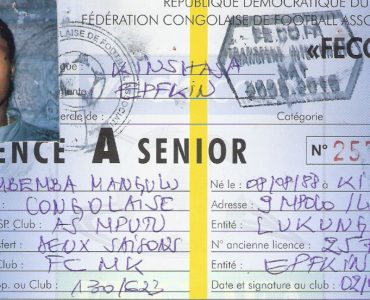 REPUBLIQUE DEMOCRATIQUE DU
FÉDÉRATION CONGOLAISE DE FOOTBALL ASSO
«FECO
gue : KINSHASA
EPFKIN
ercle de :
Catégorie
ENCE A SENIOR
N° 257
MBEMBA MANGULU
Né le : 08/08/88 à KI
CONGOLAISE
Adresse : 9 MPOLO
SP. Club : AS MPUTU
Entité : LUKUNGA
sfert : DEUX SAISONS
N° ancienne licence : 257
Club : FC MK
Entité : EPFKIN
op. ou Club : 130/623
Date et signature au club : 02/